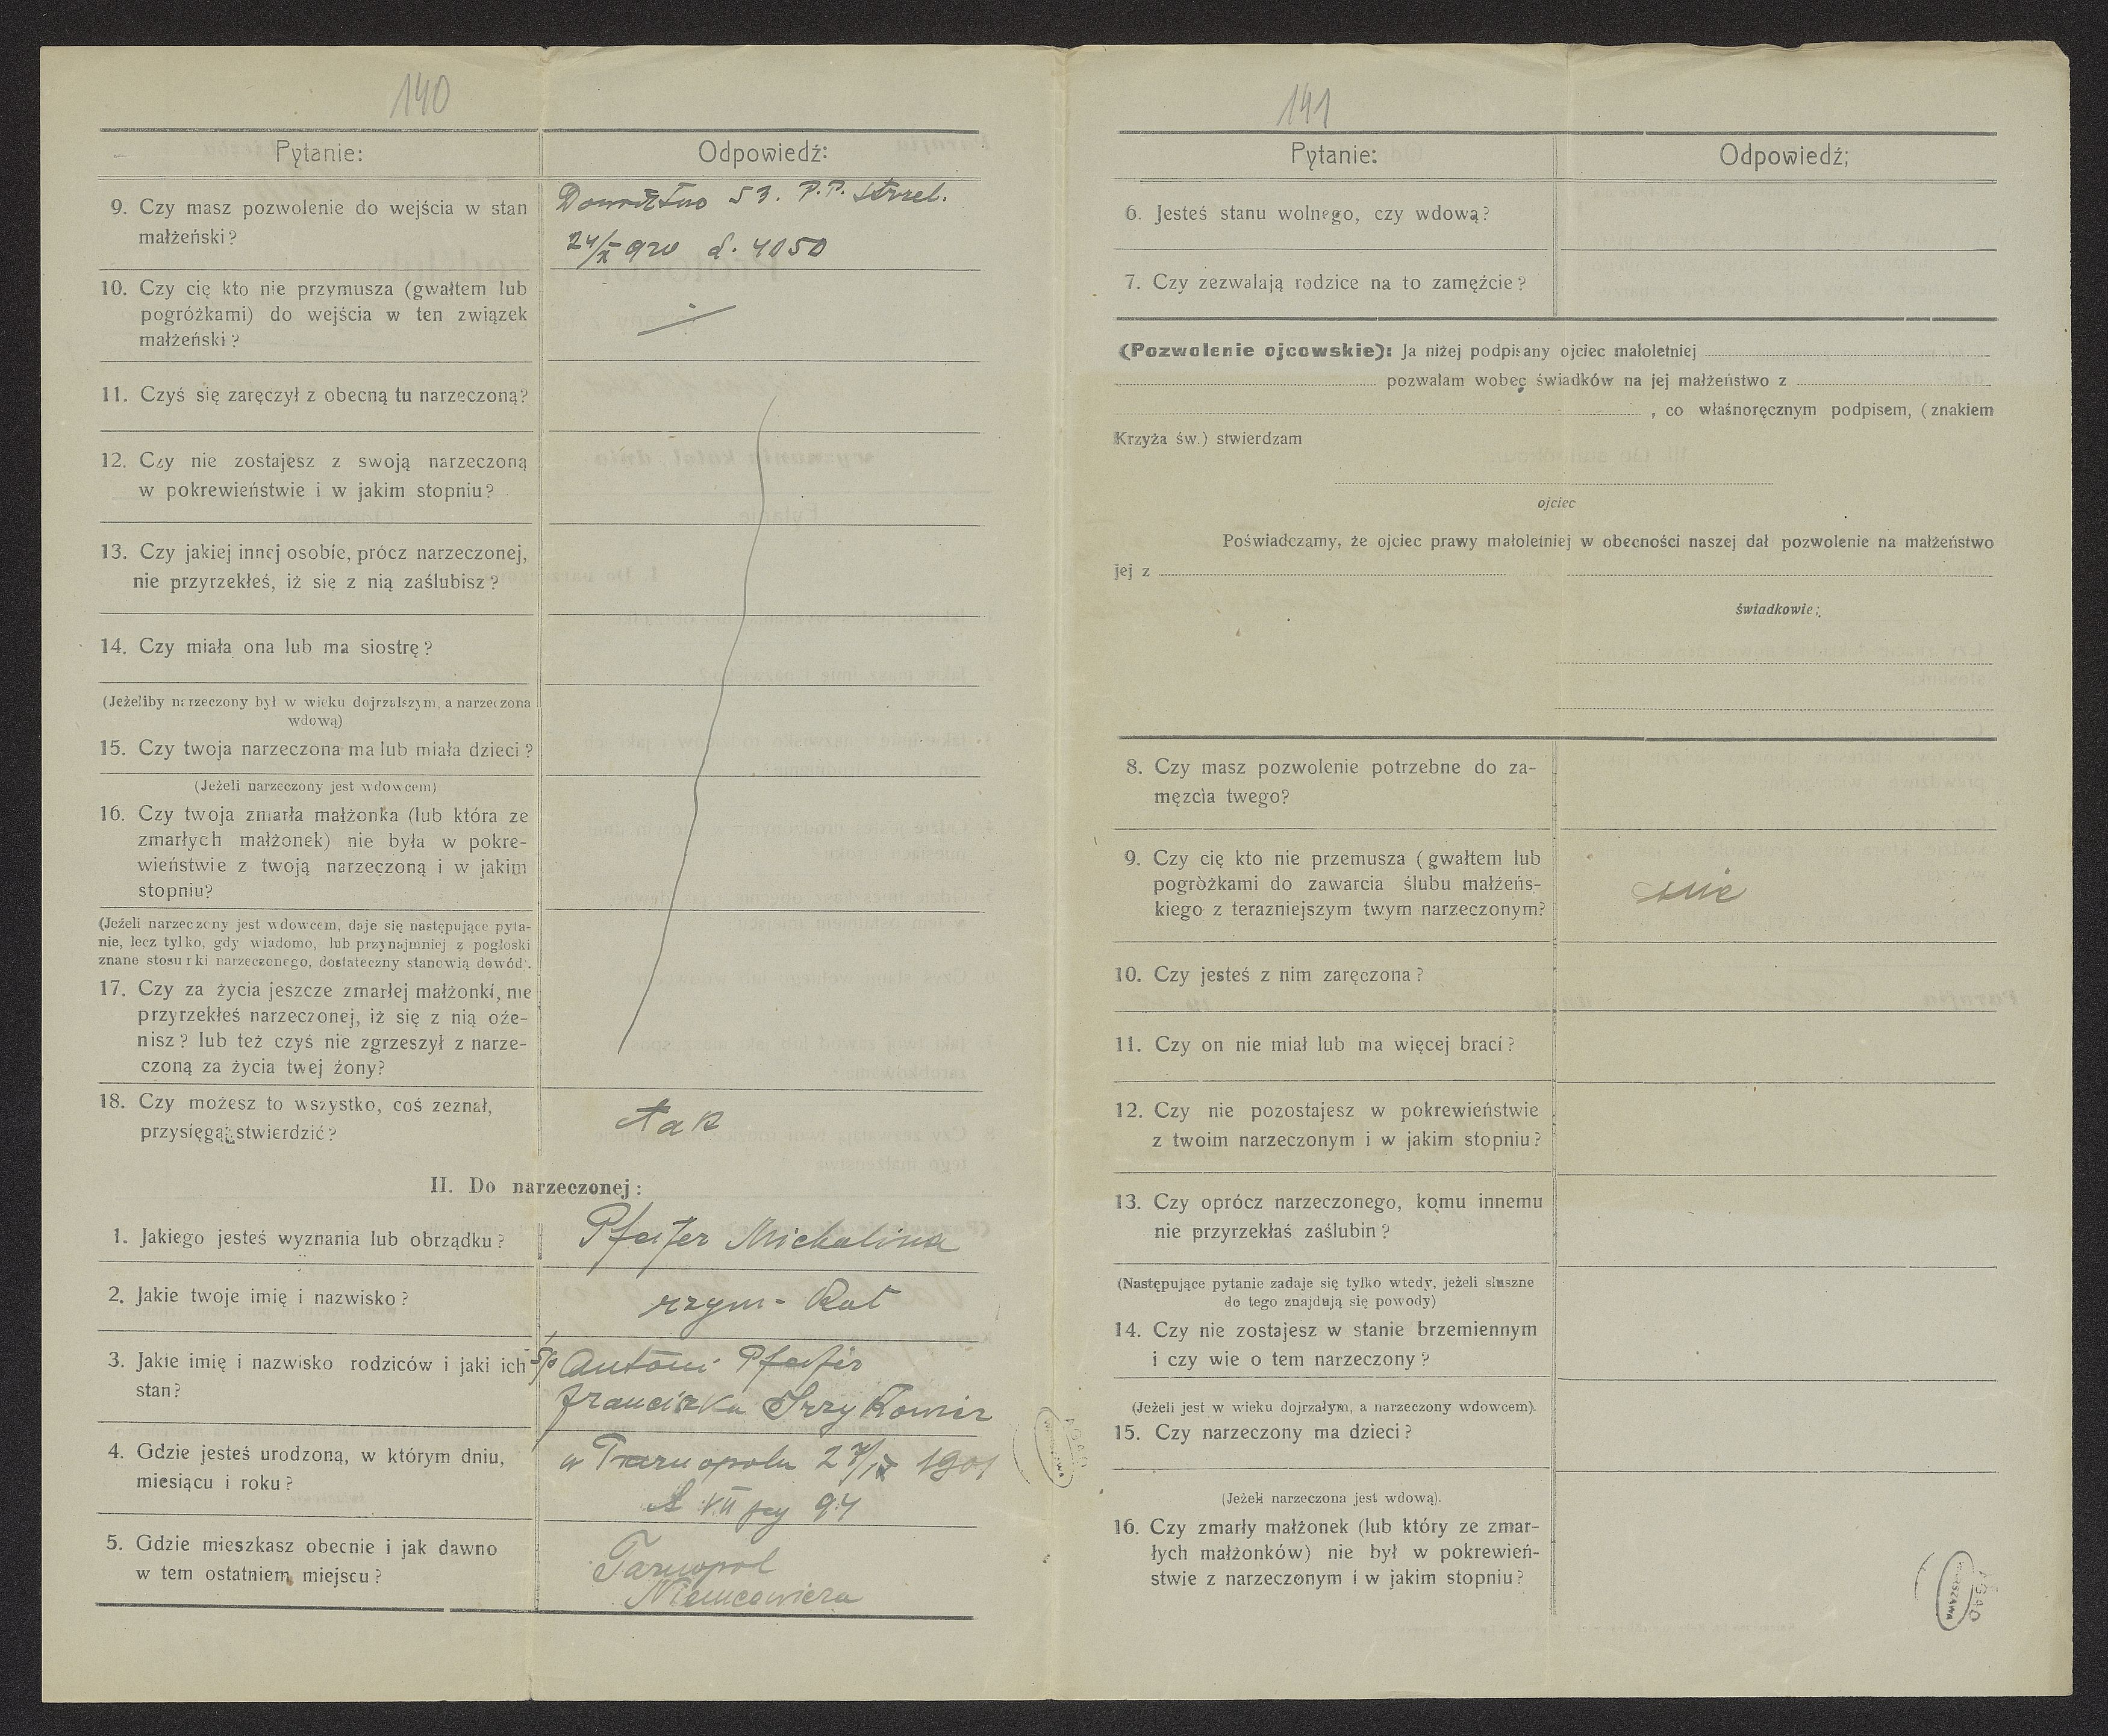 140
Pytanie:
Odpowiedź:
9. Czy masz pozwolenie do wejścia w stan
małżeński?
Dowództwo 53. P.P. Strzel.
24/X 920 L. 4050
10. Czy cię kto nie przymusza (gwałtem lub
pogróżkami) do wejścia w ten związek
małżeński?
11. Czyś się zaręczył z obecną tu narzeczoną?
12. Czy nie zostajesz z swoją narzeczoną
w pokrewieństwie i w jakim stopniu?
13. Czy jakiej innej osobie, prócz narzeczonej,
nie przyrzekłeś, iż się z nią zaślubisz?
14. Czy miała ona lub ma siostrę?
(Jeżeliby narzeczony był w wieku dojrzalszym, a narzeczona
wdową)
15. Czy twoja narzeczona ma lub miała dzieci?
(Jeżeli narzeczony jest wdowcem)
16. Czy twoja zmarła małżonka (lub która ze
zmarłych małżonek) nie była w pokre-
wieństwie z twoją narzeczoną i w jakim
stopniu?
(Jeżeli narzeczony jest wdowcem, daje się następujące pyta-
nie, lecz tylko, gdy wiadomo, lub przynajmniej z pogłoski
znane stosunki narzeczonego, dostateczny stanowią dowód).
17. Czy za życia jeszcze zmarłej małżonki, nie
przyrzekłeś narzeczonej, iż się z nią oże-
nisz? lub też czyś nie zgrzeszył z narze-
czoną za życia twej żony?
18. Czy możesz to wszystko, coś zeznał,
przysięgą stwierdzić?
tak
II. Do narzeczonej:
1. Jakiego jesteś wyznania lub obrządku?
Pfeifer Michalina
2. Jakie twoje imię i nazwisko?
rzym-Kat
3. Jakie imię i nazwisko rodziców i jaki ich
stan?
Ś/p Antoni Pfeifer
Franciszka
4. Gdzie jesteś urodzoną, w którym dniu,
miesiącu i roku?
w Tarnopolu 27/IX 1901
VII pag 94
5. Gdzie mieszkasz obecnie i jak dawno
w tem ostatniem miejscu?
Tarnopol
Niemcewicza
141
Pytanie:
Odpowiedź;
6. Jesteś stanu wolnego, czy wdową?
7. Czy zezwalają rodzice na to zamężcie?
(Pozwolenie ojcowskie): Ja niżej podpisany ojciec małoletniej
pozwalam wobec świadków na jej małżeństwo z
, co własnoręcznym podpisem, (znakiem
Krzyża św.) stwierdzam
ojciec
Poświadczamy, że ojciec prawy małoletniej w obecności naszej dał pozwolenie na małżeństwo
jej z
świadkowie;
8. Czy masz pozwolenie potrzebne do za-
męzcia twego?
9. Czy cię kto nie przemusza (gwałtem lub
pogròżkami do zawarcia ślubu małżeńs-
kiego z terazniejszym twym narzeczonym?
nie
10. Czy jesteś z nim zaręczona?
11. Czy on nie miał lub ma więcej braci?
12. Czy nie pozostajesz w pokrewieństwie
z twoim narzeczonym i w jakim stopniu?
13. Czy oprócz narzeczonego, komu innemu
nie przyrzekłaś zaślubin?
(Następujące pytanie zadaje się tylko wtedy, jeżeli słuszne
do tego znajdują się powody)
14. Czy nie zostajesz w stanie brzemiennym
i czy wie o tem narzeczony?
(Jeżeli jest w wieku dojrzałym, a narzeczony wdowcem).
15. Czy narzeczony ma dzieci?
(Jeżeli narzeczona jest wdową).
16. Czy zmarły małżonek (lub który ze zmar-
łych małżonków) nie był w pokrewień-
stwie z narzeczonym i w jakim stopniu?
AGAD
WARSZAWA